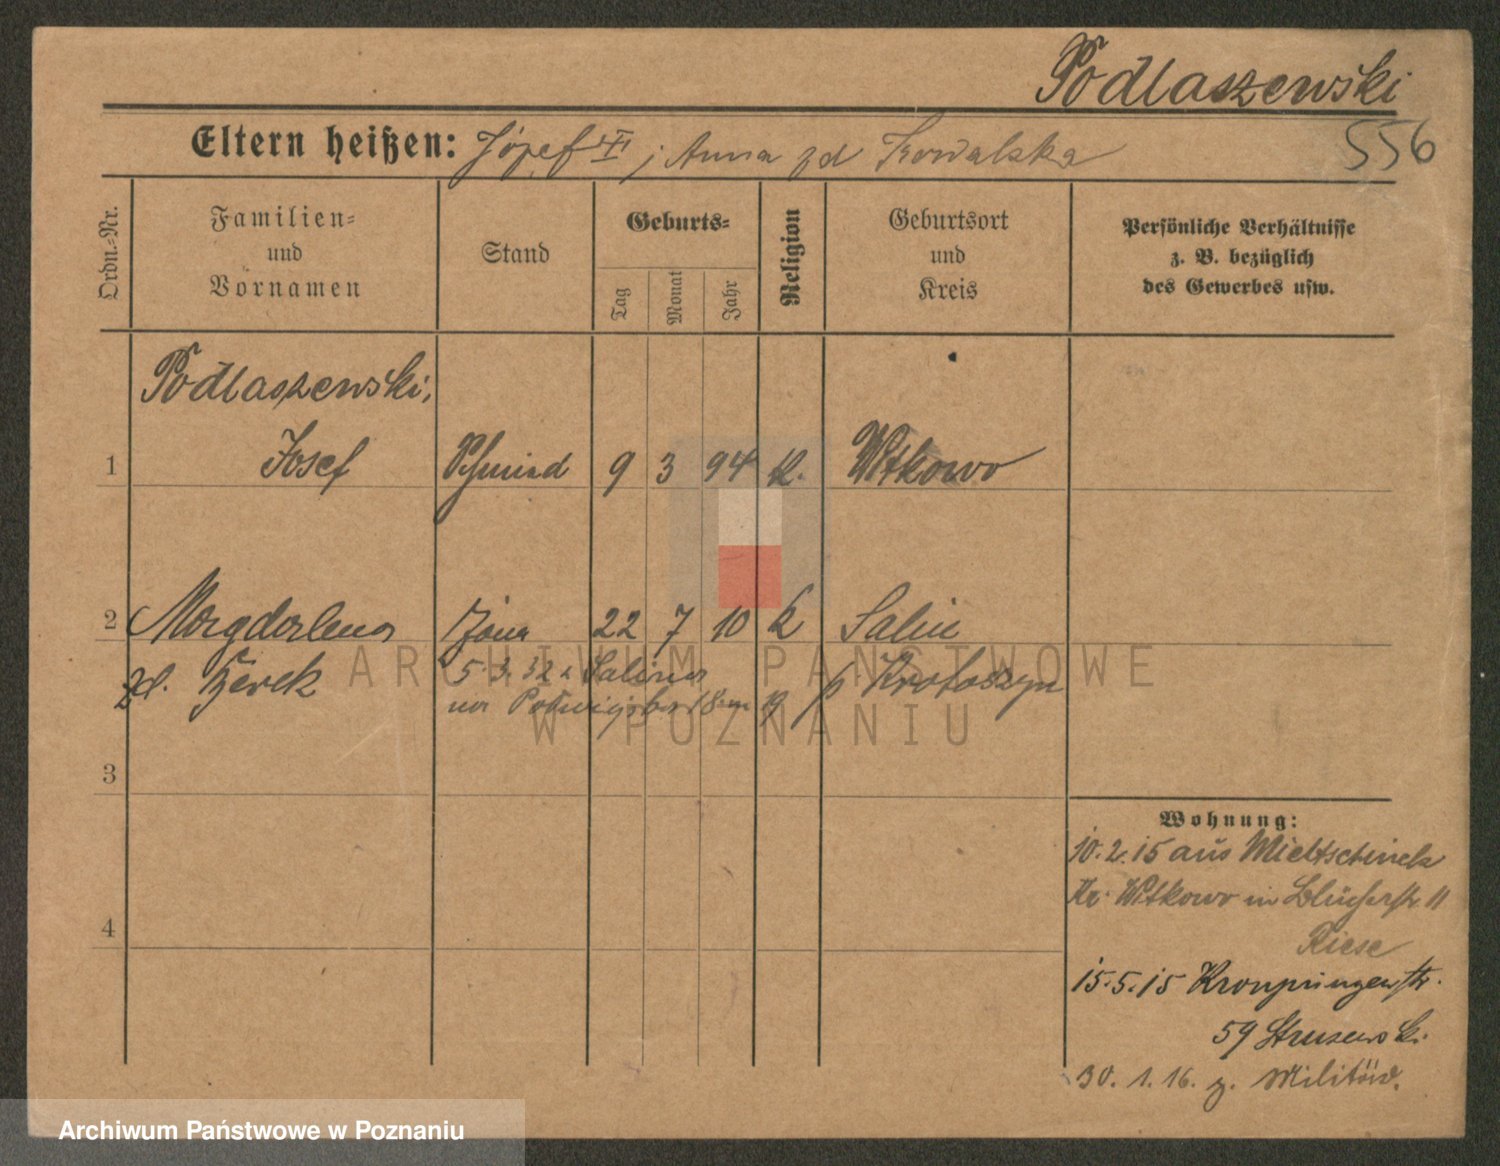 Podlaszewski
556
Eltern heißen: Józef I ; Anna zd Kowalska
Ordn.-Nr.
Familien-
und
Vornamen
Stand
Geburts-
Tag
Monat
Jahr
Religion
Geburtsort
und
Kreis
Persönliche Verhältnisse
z. B. bezüglich
des Gewerbes usw.
Podlaszewski,
1 Josef Schmied 9 3 94 k. Witkowo
2 Magdalena żona 22 7 10 k Salin
zd.
5.3.32 z Salina
p Krotoszyn
na 18 m
ARCHIWUM PAŃSTWOWE
W POZNANIU
3
4
Wohnung:
10.2.15 aus Mieltschinek
Kr. Witkowo in Blücherstr. 11
Riese
15.5.15 Kronprinzenstr.
59 Strusewski
30.1.16. z. Militär.
Archiwum Państwowe w Poznaniu